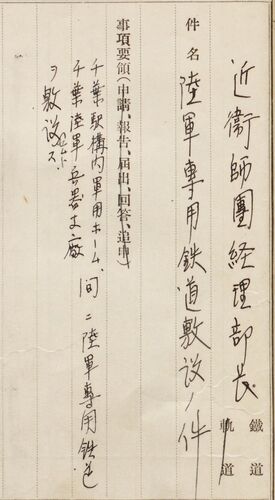 鐵道
軌道
近衛師團経理部長
件名 陸軍専用鉄道敷設ノ件
事項要領(申請、報告、屆出、回答、追申)
千葉駅構内軍用ホーム、間ニ陸軍専用鉄道
千葉陸軍兵器支廠
ヲ敷設ス